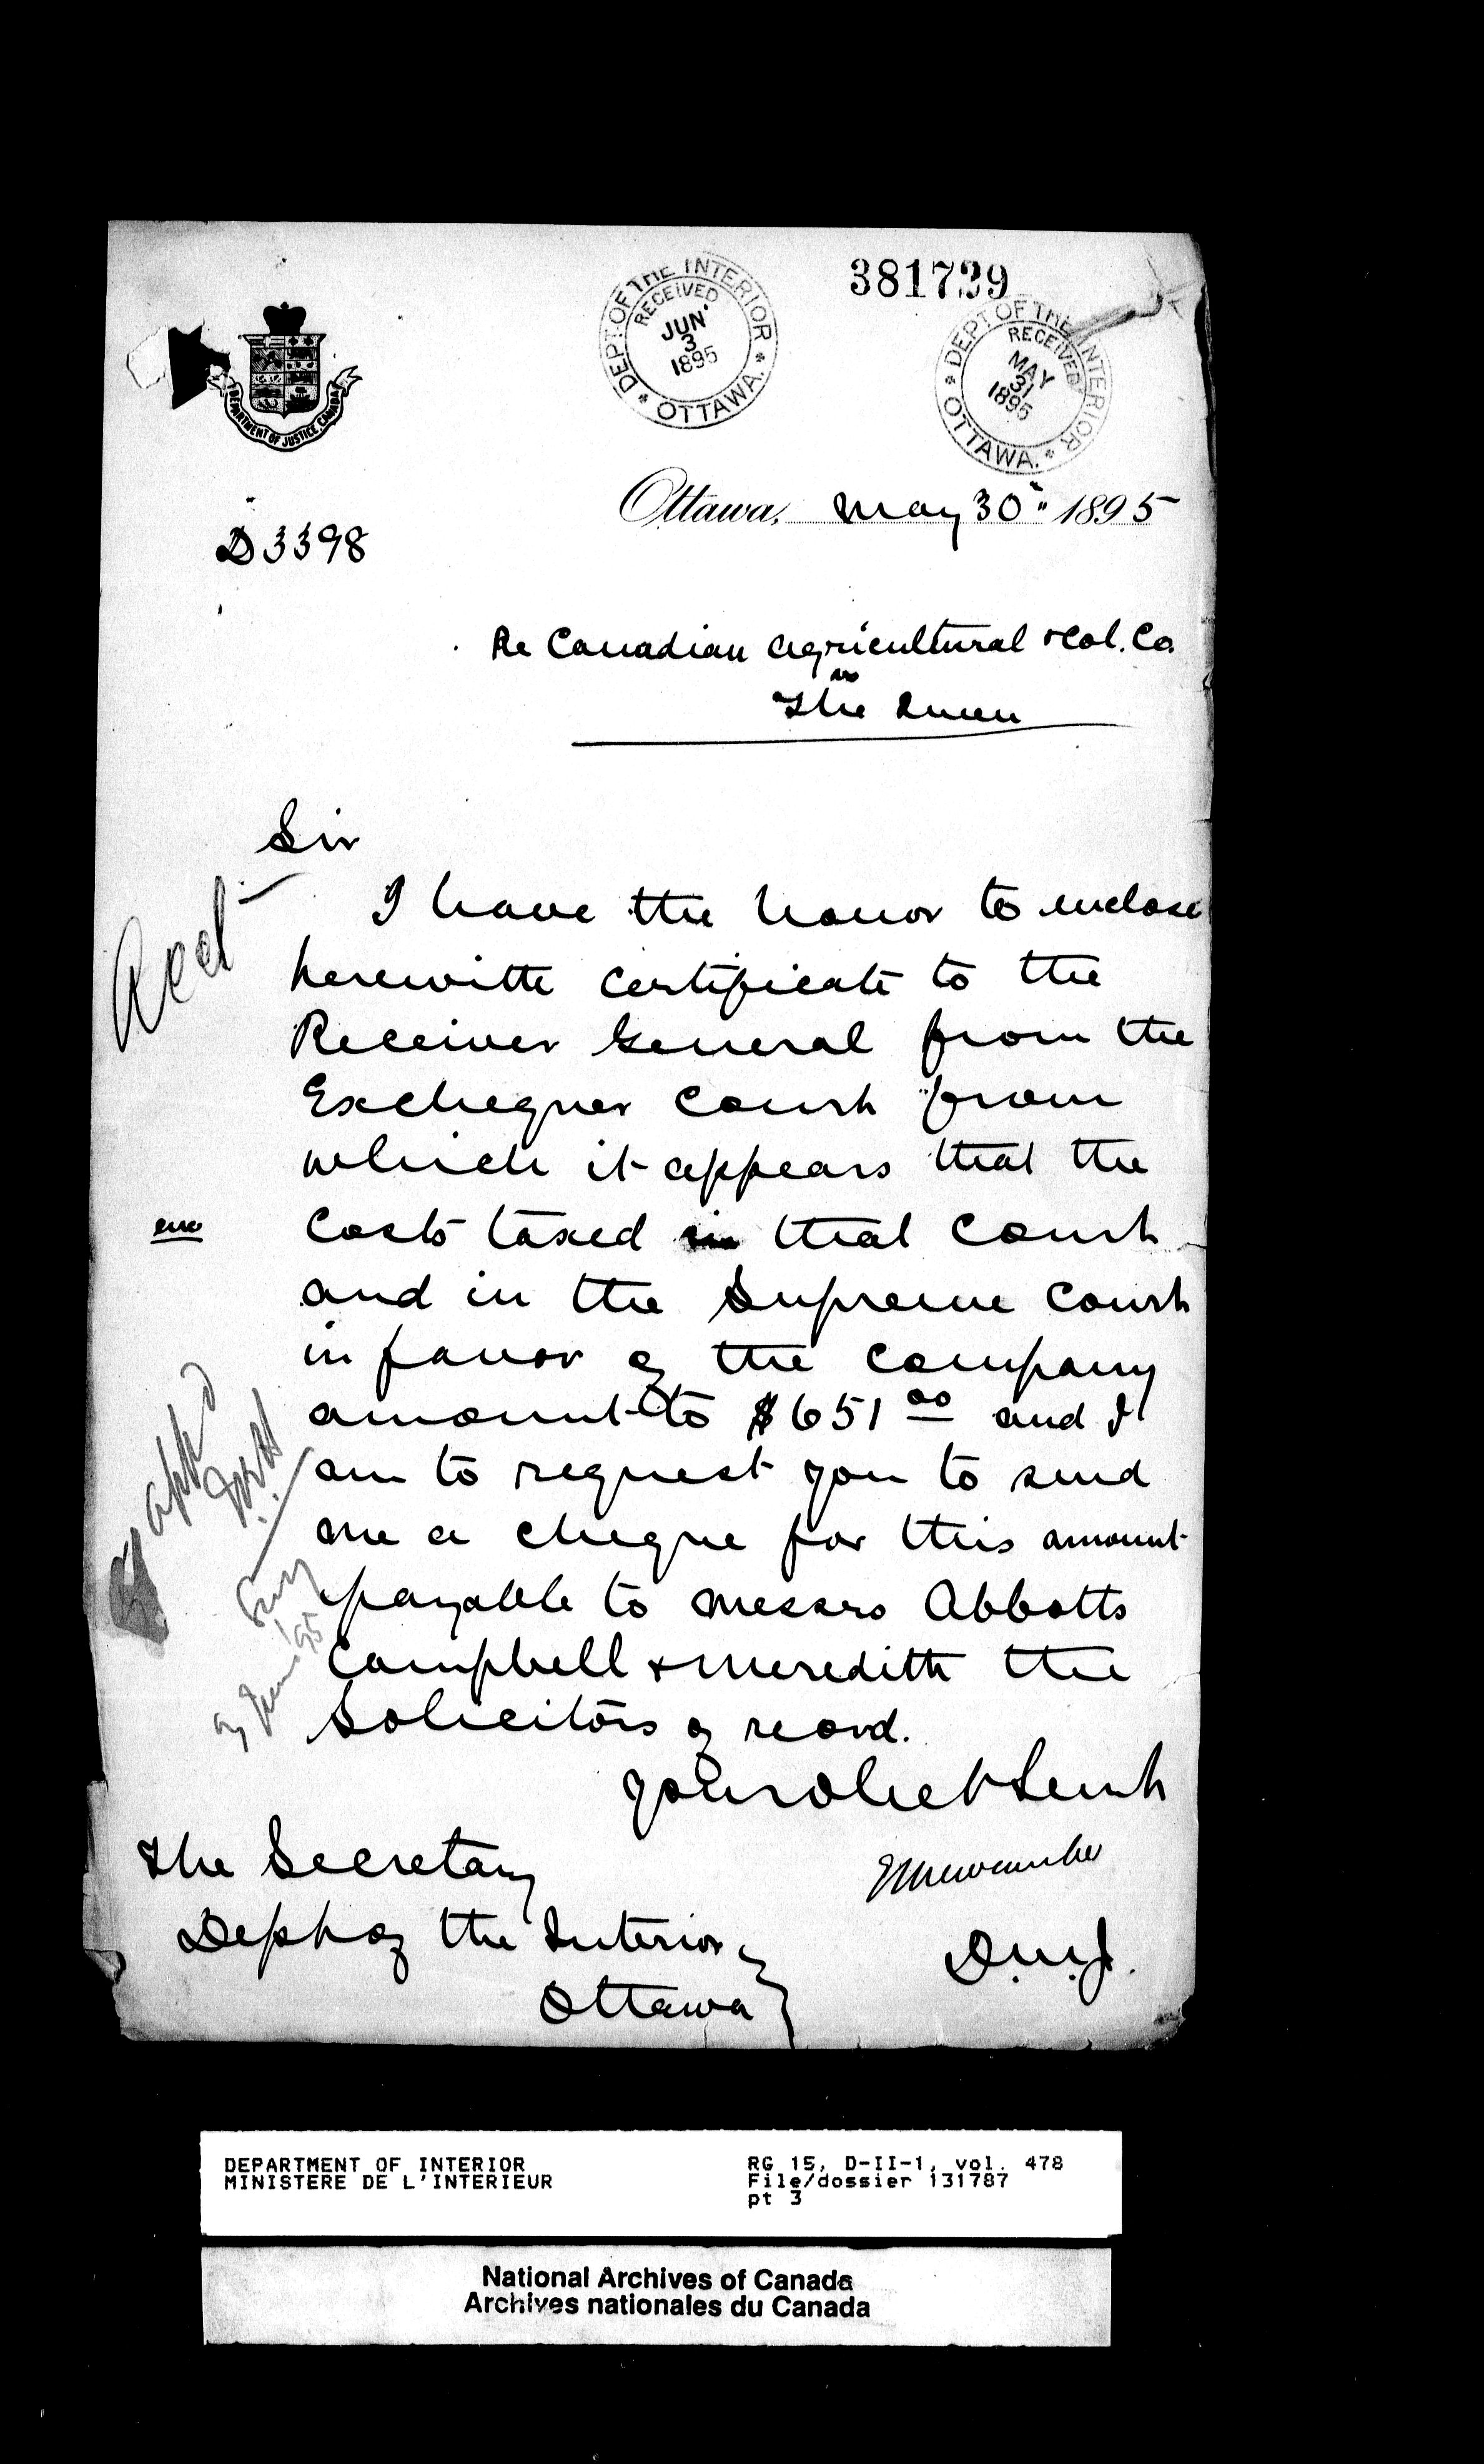 381739
DEPT OF THE INTERIOR
RECEIVED
JUN
3
1895
* OTTAWA. *
DEPT OF THE INTERIOR
RECEIVED
MAY
31
1895
* OTTAWA. *
DEPARTMENT OF JUSTICE, CANADA
Ottawa, May 30" 1895
D 3398
Re Canadian Agricultural & Col. Co.
vs
The Queen
Sir
I have the honor to enclose
herewith certificate to the
Receiver General from the
Exchequer Court from
which it appears that the
enc
costs taxed in that Court
and in the Supreme Court
in favor of the Company
amount to $651 00 and I
am to request you to send
me a cheque for this amount
payable to Messrs Abbotts
Campbell & Meredith the
Solicitors of record.
Your obedt Servt
The Secretary
Dept of the Interior
Ottawa
D.M.J.
DEPARTMENT OF INTERIOR
MINISTERE DE L'INTERIEUR
RG 15, D-II-1, vol. 478
File/dossier 131787
pt 3
National Archives of Canada
Archives nationales du Canada